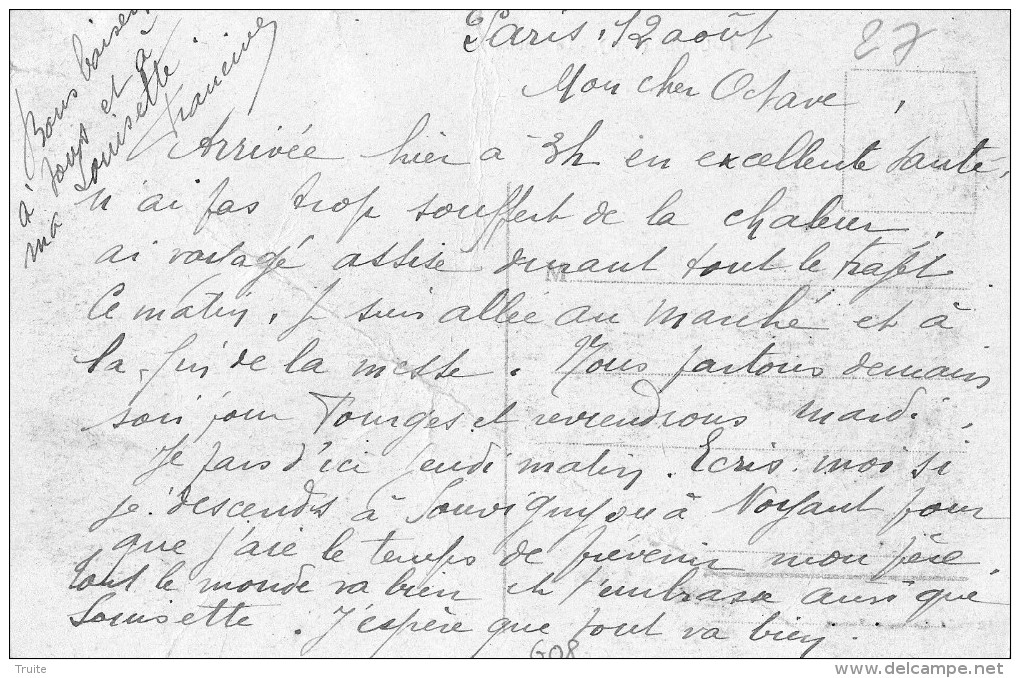 Paris, 12 août
27
Mon cher Octave,
Arrivée hier à 3h en excellente santé,
n'ai pas trop souffert de la chaleur,
ai voyagé assise durant tout le trajet
M
Ce matin, je suis allée au marché et à
la fin de la messe. Nous partons demain
soir pour et reviendrons mardi,
Je pars d'ici jeudi matin. Ecris-moi si
je descends à Souvigny ou à Noyant pour
que j'aie le temps de prévenir mon père.
Tout le monde va bien et t'embrasse ainsi que
Louisette. J'espère que tout va bien.
Bons baisers
à tous et à
ma Louisette
Francine
Truite
www.delcampe.net